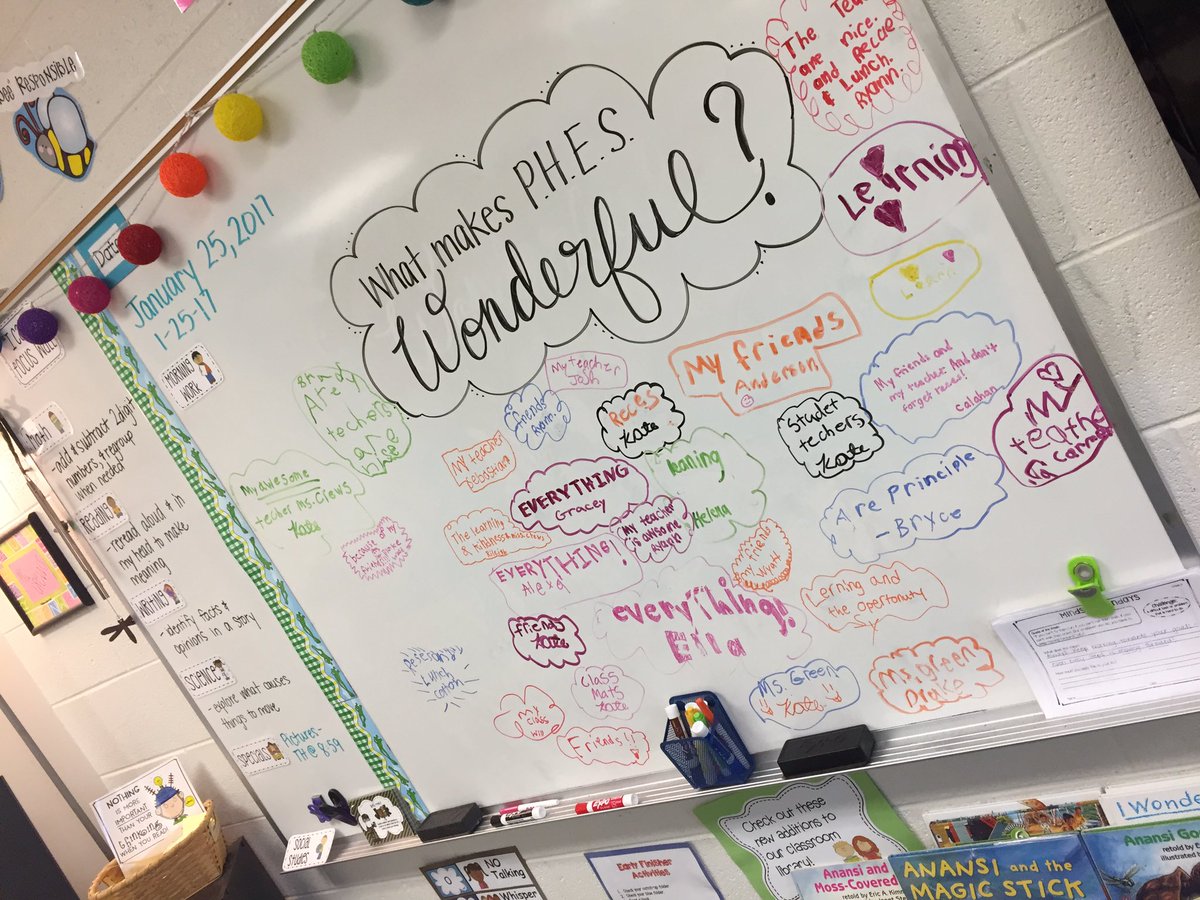 Bee RESPONSIBLE
Date
January 25, 2017
1-25-17
FOCUS WALL
MORNING
WORK
math
-add & subtract 2 digit
numbers & regroup
when needed
Reading
-reread aloud & in
my head to make
meaning
WRITING
-identify facts &
opinions in a story
SCIENCE
-explore what causes
things to move
SPECIALS
Pictures-
TH @ 8:59
Social
Studies
NOTHING
IS MORE
IMPORTANT
THAN YOUR
thinking
WHEN YOU READ!
What makes P.H.E.S.
Wonderful?
The Tea
are nice.
and Recae
& Lunch.
Ryann
Learning
Learn
My friends
Anderson
My Teacher
Josh
friends
Brady
Are
techers
are
nise
My teacher
Sebastian
Reces
Kate
Studet
techers
Kate
My friends and
my teacher. And don't
forget reces!
Calahan
My
teathe
Camer
My awesome
techer Ms. Crews
Kate
because
EVERYTHING
Gracey
leaning
Helena
Are Principle
- Bryce
The learning
& kildness & mss. crews
My teacher
is awesome
Ryann
EVERYTHING!
Alexa
my friends
Wyatt
Lerning and
the opertounaty
everything!
Ella
friends
Kate
Lunch
Class
Mats
Kate
My
class
Will
Friends!
Ms. Green
Kate
Ms. green
Drake
EXPO
NO
Talking
Whisper
Early Finisher
Activities
Check out these
new additions to
our classroom
library!
Anansi and
Moss-Covered
retold by Eric A. Kim
ANANSI and the
MAGIC STICK
I Wonde
Anansi Go
retold by Er
illustrated